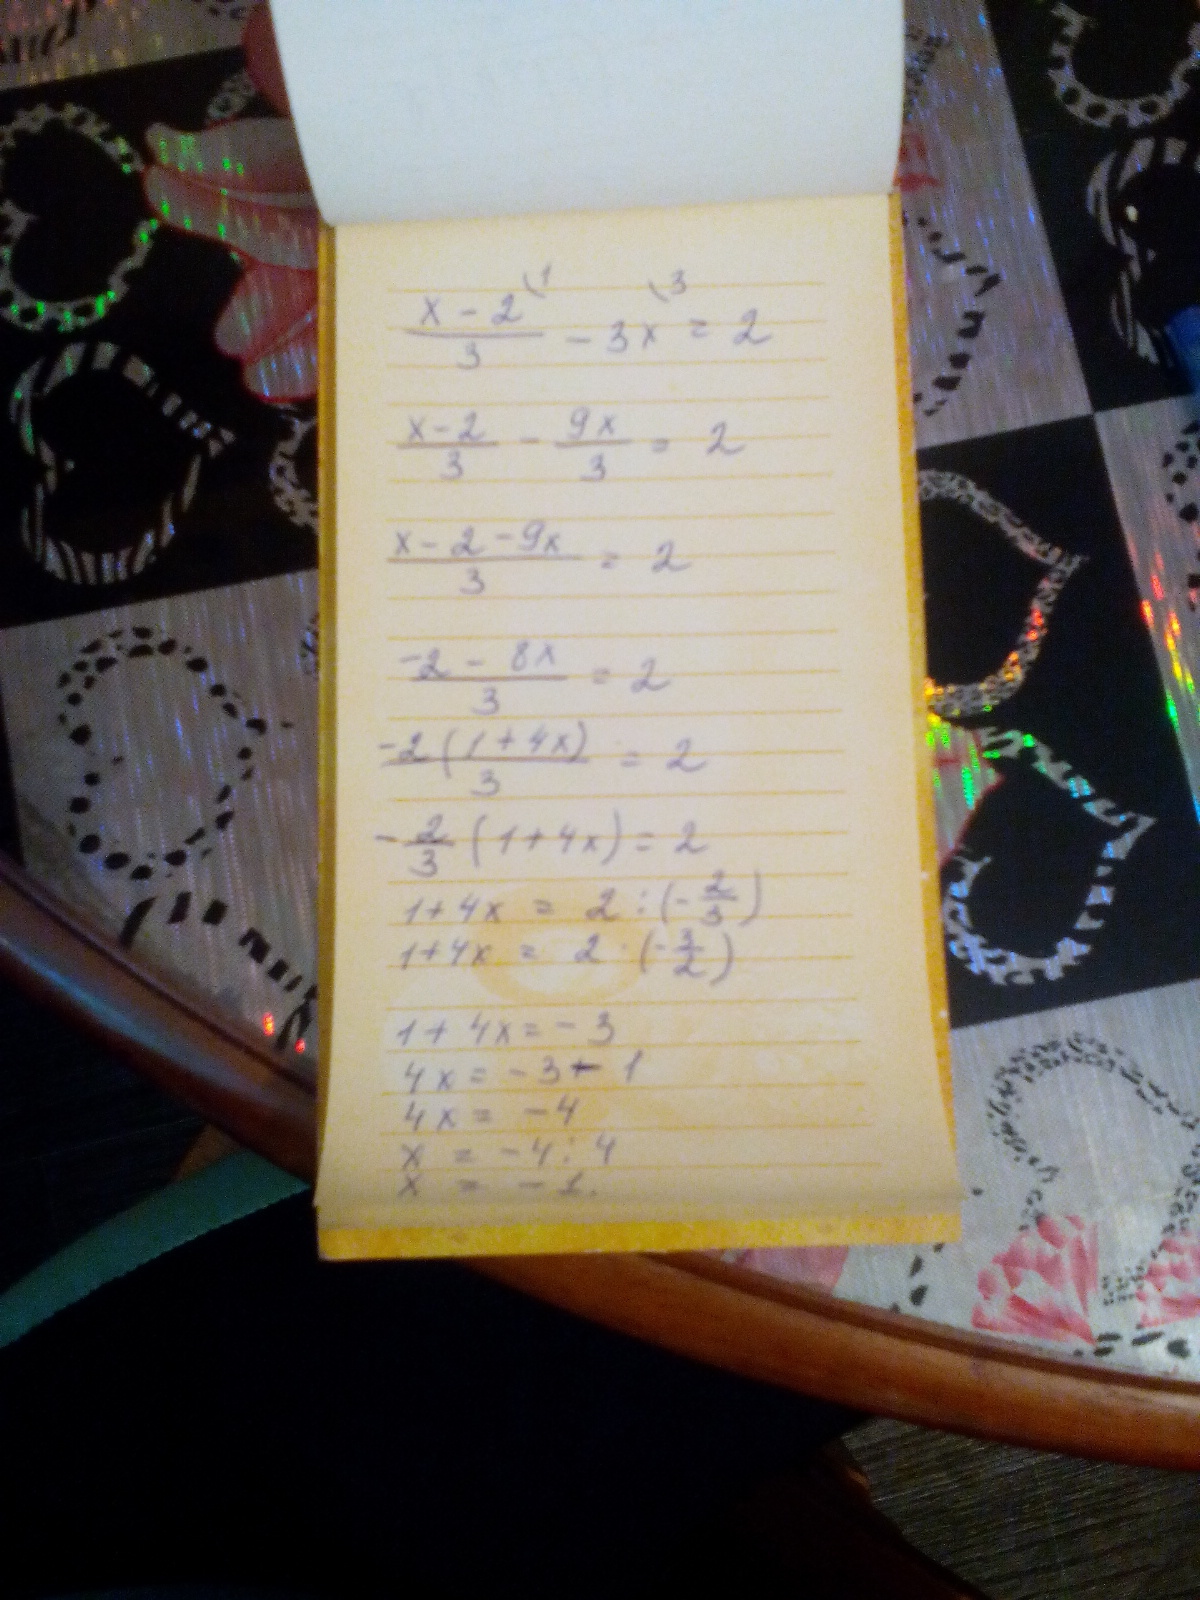 (x - 2)/3 \1 - 3x \3 = 2
(x - 2)/3 - 9x/3 = 2
(x - 2 - 9x)/3 = 2
(-2 - 8x)/3 = 2
-2(1 + 4x)/3 = 2
- 2/3 (1 + 4x) = 2
1 + 4x = 2 : (- 2/3)
1 + 4x = 2 · (- 3/2)
1 + 4x = - 3
4x = - 3 - 1
4x = - 4
x = - 4 : 4
x = - 1.